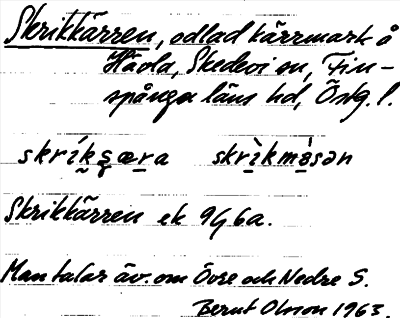 Skrikkärren, odlad kärrmark å
Hävla, Skedevi sn, Fin-
spånga läns hd, Östg. l.
skrik̬ʂæra skrìkmåsən
Skrikkärren ek 9G6a.
Man talar äv. om Övre och Nedre S.
Bernt Olsson 1963.